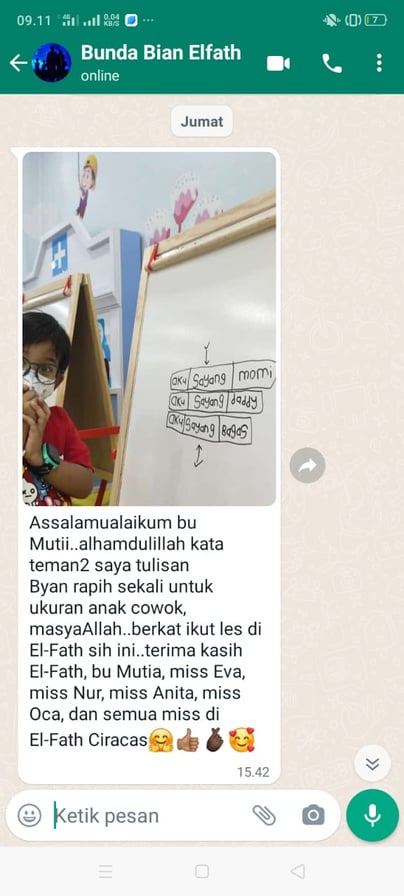 09.11
4G
0,04
KB/S
7
Bunda Bian Elfath
online
Jumat
aku sayang momi
aku sayang daddy
aku sayang Bagas
Assalamualaikum bu
Mutii..alhamdulillah kata
teman2 saya tulisan
Byan rapih sekali untuk
ukuran anak cowok,
masyaAllah..berkat ikut les di
El-Fath sih ini..terima kasih
El-Fath, bu Mutia, miss Eva,
miss Nur, miss Anita, miss
Oca, dan semua miss di
El-Fath Ciracas🤗👍🏾🫰🏿🥰
15.42
Ketik pesan